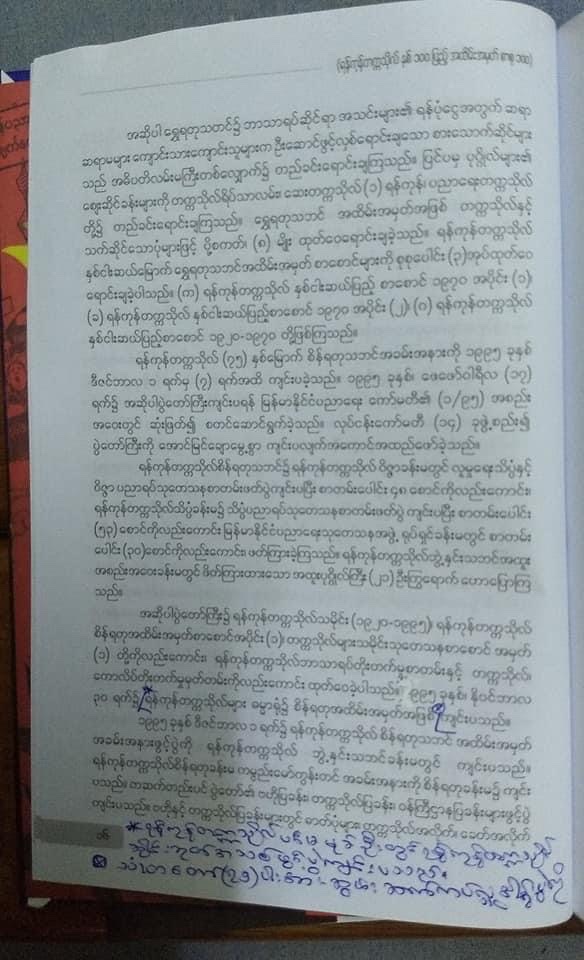 (ရန်ကုန်တက္ကသိုလ် နှစ် ၁၀၀ ပြည့် အထိမ်းအမှတ် စာစု ၁၀၀)
အဆိုပါ ရွှေရတုသဘင်၌ ဘာသာရပ်ဆိုင်ရာ အသင်းများ၏ ရန်ပုံငွေအတွက် ဆရာ
ဆရာမများ ကျောင်းသားကျောင်းသူများက ဦးဆောင်ဖွင့်လှစ်ရောင်းချသော စားသောက်ဆိုင်များ
သည် အဓိပတိလမ်းမကြီးတစ်လျှောက်၌ တည်ခင်းရောင်းချကြသည်။ ပြင်ပမှ ပုဂ္ဂိုလ်များ၏
ဈေးဆိုင်ခန်းများကို တက္ကသိုလ်ရိပ်သာလမ်း၊ ဆေးတက္ကသိုလ် (၁) ရန်ကုန်၊ ပညာရေးတက္ကသိုလ်
တို့၌ တည်ခင်းရောင်းချကြသည်။ ရွှေရတုသဘင် အထိမ်းအမှတ်အဖြစ် တက္ကသိုလ်နှင့်
သက်ဆိုင်သောပုံများဖြင့် ပို့စကတ် (၈) မျိုး ထုတ်ဝေရောင်းချခဲ့သည်။ ရန်ကုန်တက္ကသိုလ်
နှစ်ငါးဆယ်မြောက် ရွှေရတုသဘင်အထိမ်းအမှတ် စာစောင်များကို စုစုပေါင်း (၃)အုပ်ထုတ်ဝေ
ရောင်းချခဲ့ပါသည်။ (က) ရန်ကုန်တက္ကသိုလ် နှစ်ငါးဆယ်ပြည့် စာစောင် ၁၉၇၀ အပိုင်း (၁)၊
(ခ) ရန်ကုန်တက္ကသိုလ် နှစ်ငါးဆယ်ပြည့်စာစောင် ၁၉၇၀ အပိုင်း (၂)၊ (ဂ) ရန်ကုန်တက္ကသိုလ်
နှစ်ငါးဆယ်ပြည့်စာစောင် ၁၉၂၀-၁၉၇၀ တို့ဖြစ်ကြသည်။
ရန်ကုန်တက္ကသိုလ် (၇၅) နှစ်မြောက် စိန်ရတုသဘင်အခမ်းအနားကို ၁၉၉၅ ခုနှစ်
ဒီဇင်ဘာလ ၁ ရက်မှ (၇) ရက်အထိ ကျင်းပခဲ့သည်။ ၁၉၉၅ ခုနှစ်၊ ဖေဖော်ဝါရီလ (၁၇)
ရက်၌ အဆိုပါပွဲတော်ကြီးကျင်းပရန် မြန်မာနိုင်ငံပညာရေး ကော်မတီ၏ (၁/၉၅) အစည်း
အဝေးတွင် ဆုံးဖြတ်၍ စတင်ဆောင်ရွက်ခဲ့သည်။ လုပ်ငန်းကော်မတီ (၁၄) ခုဖွဲ့စည်း၍
ပွဲတော်ကြီးကို အောင်မြင်ချောမွေ့စွာ ကျင်းပလျက်အကောင်အထည်ဖော်ခဲ့သည်။
ရန်ကုန်တက္ကသိုလ်စိန်ရတုသဘင်၌ ရန်ကုန်တက္ကသိုလ် ဝိဇ္ဇာခန်းမတွင် လူမှုရေးသိပ္ပံနှင့်
ဝိဇ္ဇာ ပညာရပ်သုတေသနစာတမ်းဖတ်ပွဲကျင်းပပြီး စာတမ်းပေါင်း ၄၈ စောင်ကိုလည်းကောင်း၊
ရန်ကုန်တက္ကသိုလ်သိပ္ပံခန်းမ၌ သိပ္ပံပညာရပ်သုတေသနစာတမ်းဖတ်ပွဲ ကျင်းပပြီး စာတမ်းပေါင်း
(၅၃) စောင်ကိုလည်းကောင်း မြန်မာနိုင်ငံပညာရေးသုတေသနအဖွဲ့ ရုပ်ရှင်ခန်းမတွင် စာတမ်း
ပေါင်း (၃၀)စောင်ကိုလည်းကောင်း၊ ဖတ်ကြားခဲ့ကြသည်။ ရန်ကုန်တက္ကသိုလ်ဘွဲ့နှင်းသဘင်အထူး
အစည်းအဝေးခန်းမတွင် ဖိတ်ကြားထားသော အထူးပုဂ္ဂိုလ်ကြီး (၂၁) ဦးကြွရောက် ဟောပြောကြ
သည်။
အဆိုပါပွဲတော်ကြီး၌ ရန်ကုန်တက္ကသိုလ်သမိုင်း (၁၉၂၀-၁၉၉၅)၊ ရန်ကုန်တက္ကသိုလ်
စိန်ရတုအထိမ်းအမှတ်စာစောင်အပိုင်း (၁)၊ တက္ကသိုလ်များသမိုင်းသုတေသနစာစောင် အမှတ်
(၁) တို့ကိုလည်းကောင်း၊ ရန်ကုန်တက္ကသိုလ်ဘာသာရပ်တိုးတက်မှုစာတမ်းနှင့် တက္ကသိုလ်၊
ကောလိပ်တိုးတက်မှုမှတ်တမ်းကိုလည်းကောင်း ထုတ်ဝေခဲ့ပါသည်။ ၁၉၉၅ ခုနှစ်၊ နိုဝင်ဘာလ
၃၀ ရက်၌ ရန်ကုန်တက္ကသိုလ်များ ဓမ္မာရုံ၌ စိန်ရတုအထိမ်းအမှတ်အဖြစ် ကျင်းပသည်။
၁၉၉၅ ခုနှစ် ဒီဇင်ဘာလ ၁ ရက်၌ ရန်ကုန်တက္ကသိုလ် စိန်ရတုသဘင် အထိမ်းအမှတ်
အခမ်းအနားဖွင့်ပွဲကို ရန်ကုန်တက္ကသိုလ် ဘွဲ့နှင်းသဘင်ခန်းမတွင် ကျင်းပသည်။
ရန်ကုန်တက္ကသိုလ်စိန်ရတုခန်းမ ကမ္ပည်းမော်ကွန်းတင် အခမ်းအနားကို စိန်ရတုခန်းမ၌ ကျင်း
ပသည်။ တဆက်တည်းပင် ပွဲတော်၏ ဗဟိုပြခန်း၊ တက္ကသိုလ်ပြခန်း၊ ဝန်ကြီးဌာနပြခန်းများဖွင့်ပွဲ
ကျင်းပသည်။ ဗဟိုနှင့် တက္ကသိုလ်ပြခန်းများတွင် ဓာတ်ပုံများ၊ တက္ကသိုလ်အလိုက်၊ ခေတ်အလိုက်